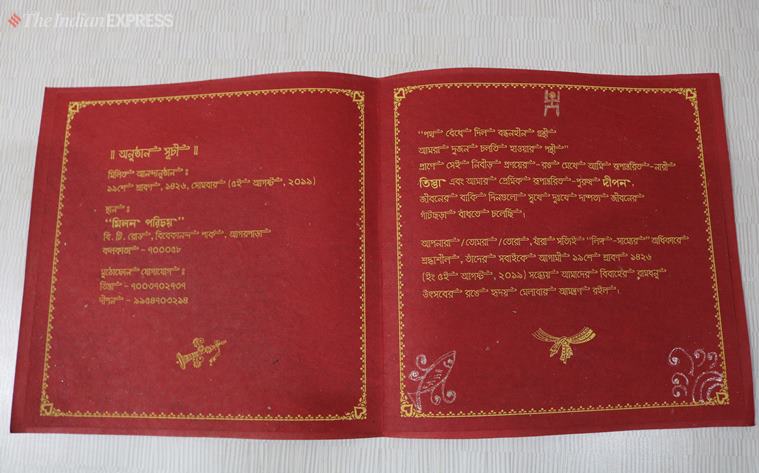 The Indian EXPRESS
॥ অনুষ্ঠান সূচী ॥
মিলিত আনন্দানুষ্ঠান :
১৯শে শ্রাবণ, ১৪২৬, সোমবার (৫ই আগস্ট, ২০১৯)
স্থান :
“মিলন পরিচয়”
বি. টি. রোড, বিবেকানন্দ পার্ক, আগরপাড়া
কলকাতা – ৭০০০৫৮
মুঠোফোনে যোগাযোগ :
তিস্তা – ৭০০৩৭০২৭৩৭
দীপন – ৯৯৫৪৭০৩২৯৪
“পথ বেঁধে দিল বন্ধনহীন গ্রন্থী
আমরা দুজন চলতি হাওয়ার পন্থী”
প্রাণে সেই নিবীড় প্রণয়ের রঙ মেখে আমি রূপান্তরিত নারী
তিস্তা এবং আমার প্রেমিক রূপান্তরিত পুরুষ দীপন,
জীবনের বাকি দিনগুলো সুখে দুঃখে দাম্পত্য জীবনের
গাঁটছড়া বাঁধতে চলেছি।
আপনারা/তোমরা/তোরা, যাঁরা সত্যিই “লিঙ্গ-সাম্যের” অধিকারে
শ্রদ্ধাশীল, তাঁদের সবাইকে আগামী ১৯শে শ্রাবণ ১৪২৬
(ইং ৫ই আগস্ট, ২০১৯) সন্ধ্যেয় আমাদের বিবাহের রামধনু
উৎসবের রঙে হৃদয় মেলাবার আমন্ত্রণ রইল।